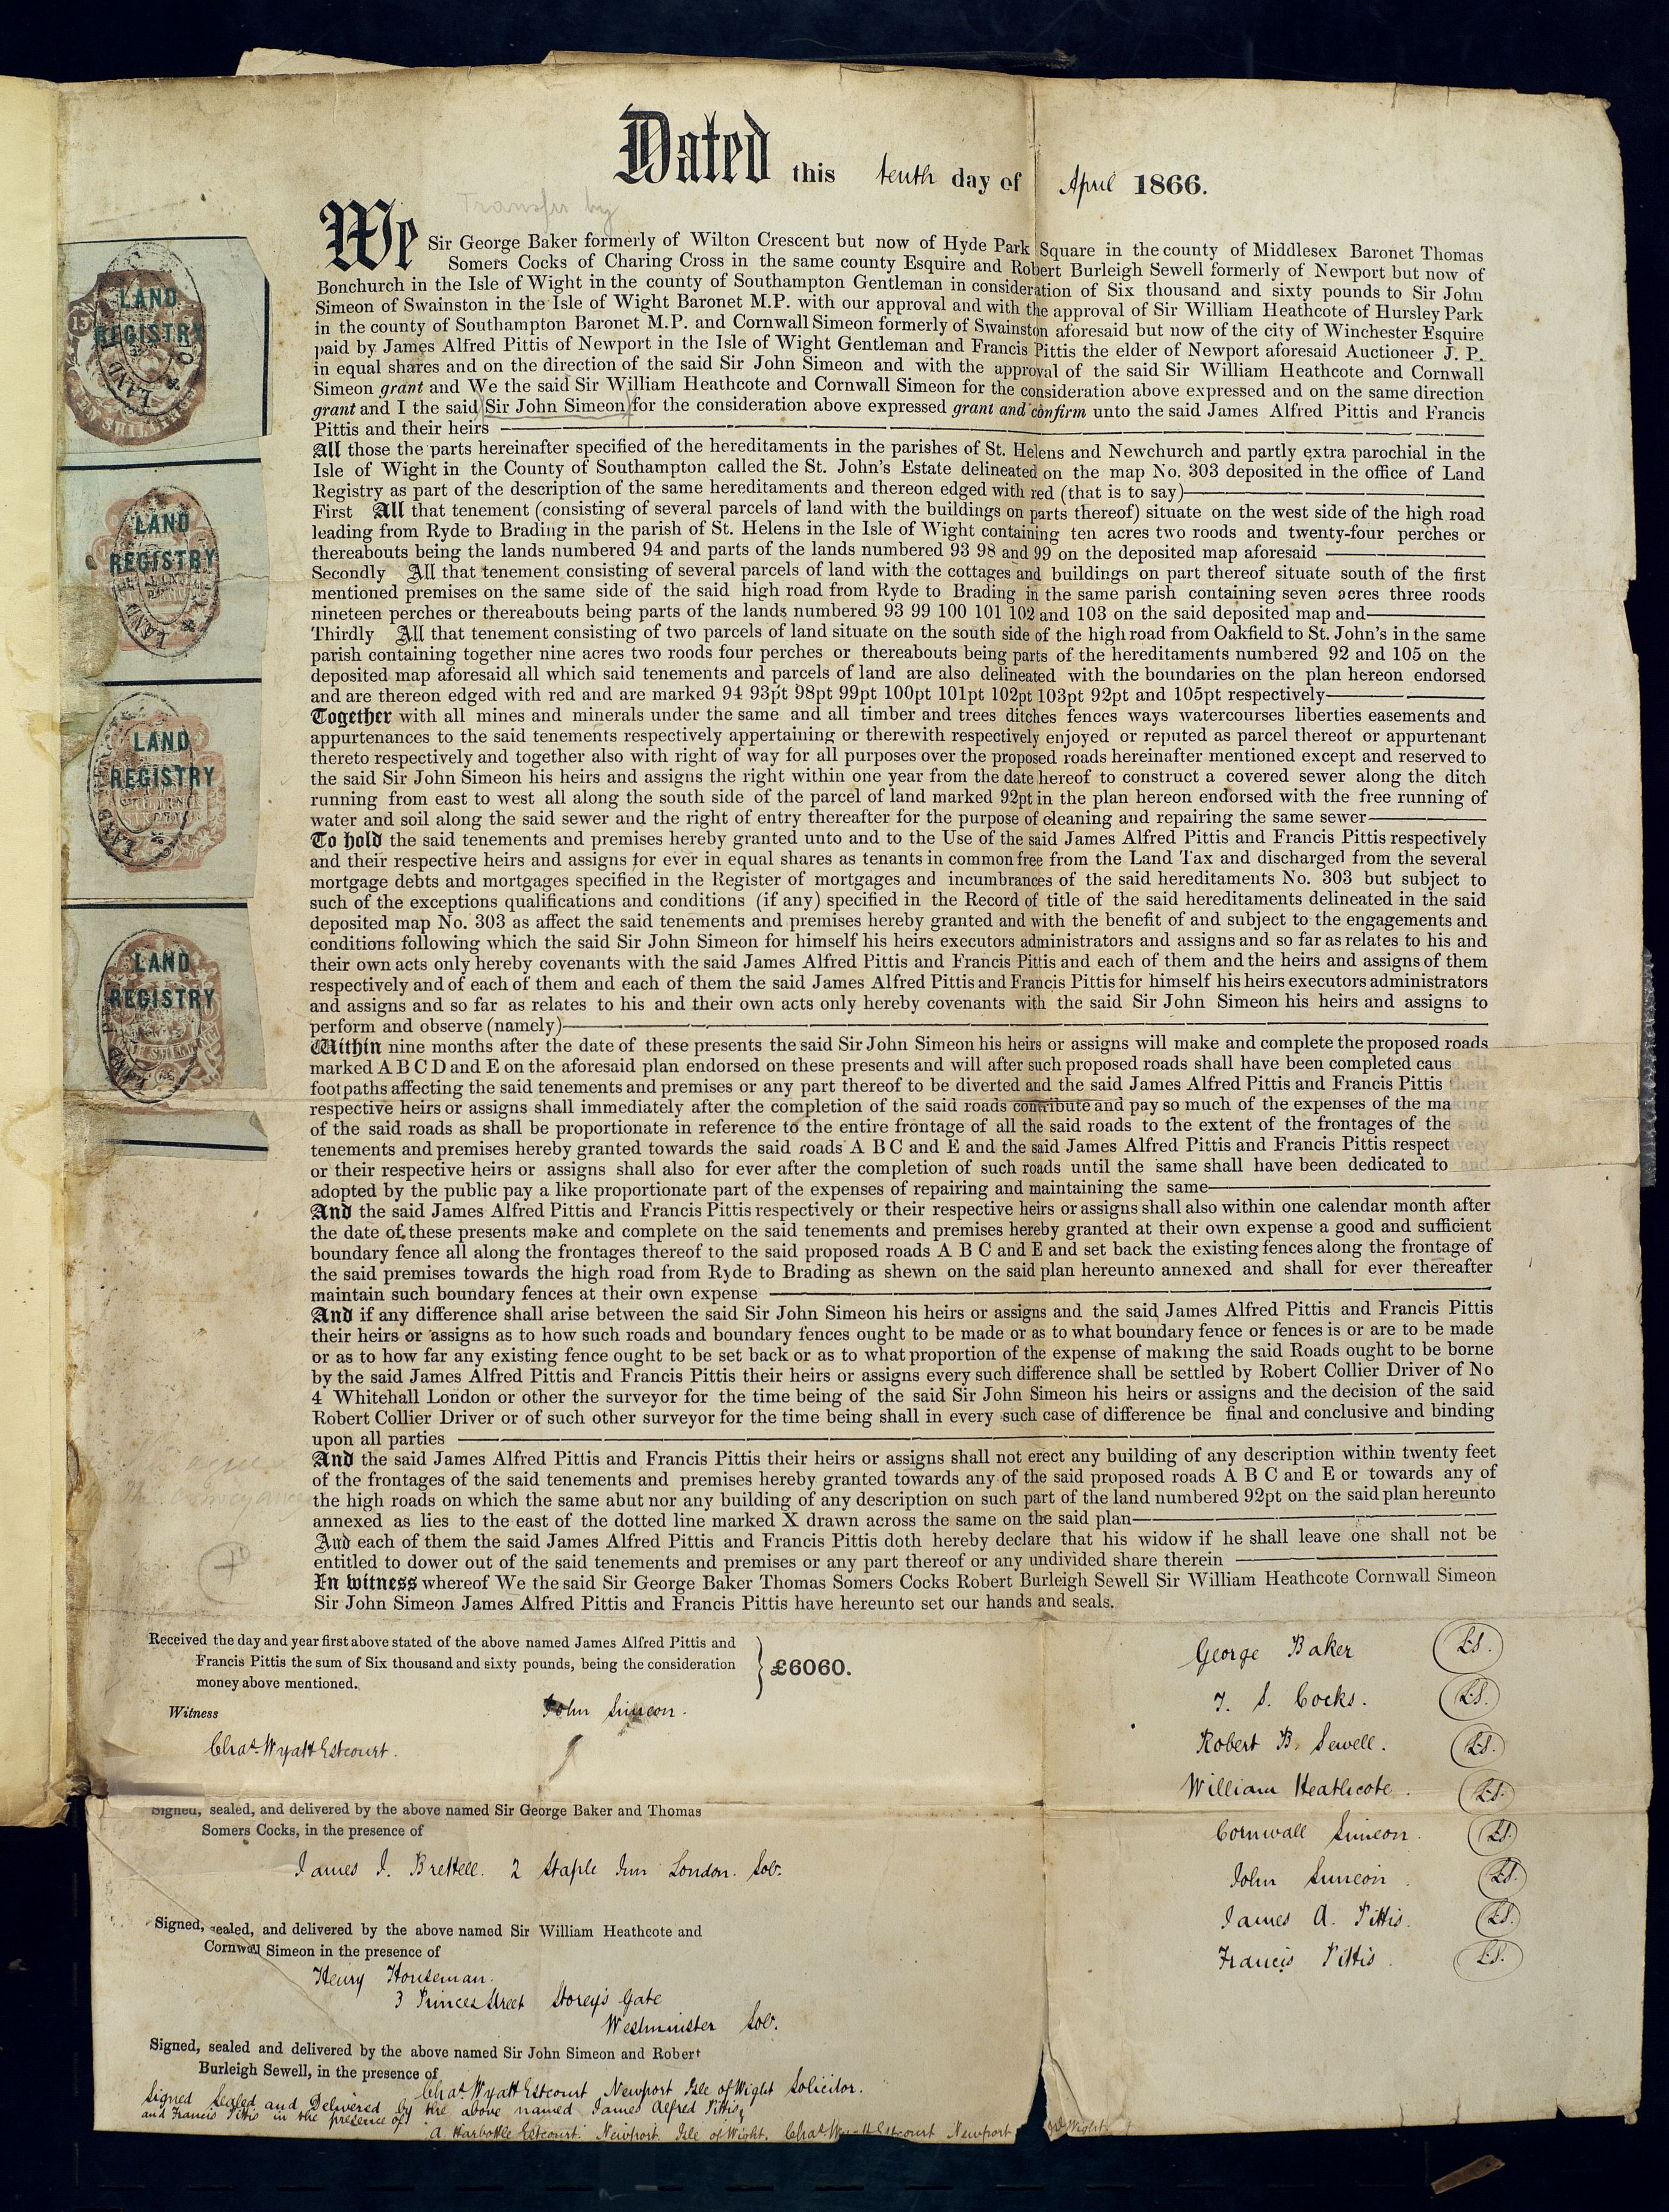 Dated this tenth day of April 1866.
Transfer by
We Sir George Baker formerly of Wilton Crescent but now of Hyde Park Square in the county of Middlesex Baronet Thomas
Somers Cocks of Charing Cross in the same county Esquire and Robert Burleigh Sewell formerly of Newport but now of
Bonchurch in the Isle of Wight in the county of Southampton Gentleman in consideration of Six thousand and sixty pounds to Sir John
Simeon of Swainston in the Isle of Wight Baronet M.P. with our approval and with the approval of Sir William Heathcote of Hursley Park
in the county of Southampton Baronet M.P. and Cornwall Simeon formerly of Swainston aforesaid but now of the city of Winchester Esquire
paid by James Alfred Pittis of Newport in the Isle of Wight Gentleman and Francis Pittis the elder of Newport aforesaid Auctioneer J. P.
in equal shares and on the direction of the said Sir John Simeon and with the approval of the said Sir William Heathcote and Cornwall
Simeon grant and We the said Sir William Heathcote and Cornwall Simeon for the consideration above expressed and on the same direction
grant and I the said (Sir John Simeon) for the consideration above expressed grant and confirm unto the said James Alfred Pittis and Francis
Pittis and their heirs
All those the parts hereinafter specified of the hereditaments in the parishes of St. Helens and Newchurch and partly extra parochial in the
Isle of Wight in the County of Southampton called the St. John's Estate delineated on the map No. 303 deposited in the office of Land
Registry as part of the description of the same hereditaments and thereon edged with red (that is to say)
First All that tenement (consisting of several parcels of land with the buildings on parts thereof) situate on the west side of the high road
leading from Ryde to Brading in the parish of St. Helens in the Isle of Wight containing ten acres two roods and twenty-four perches or
thereabouts being the lands numbered 94 and parts of the lands numbered 93 98 and 99 on the deposited map aforesaid
Secondly All that tenement consisting of several parcels of land with the cottages and buildings on part thereof situate south of the first
mentioned premises on the same side of the said high road from Ryde to Brading in the same parish containing seven acres three roods
nineteen perches or thereabouts being parts of the lands numbered 93 99 100 101 102 and 103 on the said deposited map and
Thirdly All that tenement consisting of two parcels of land situate on the south side of the high road from Oakfield to St. John's in the same
parish containing together nine acres two roods four perches or thereabouts being parts of the hereditaments numbered 92 and 105 on the
deposited map aforesaid all which said tenements and parcels of land are also delineated with the boundaries on the plan hereon endorsed
and are thereon edged with red and are marked 94 93pt 98pt 99pt 100pt 101pt 102pt 103pt 92pt and 105pt respectively
Together with all mines and minerals under the same and all timber and trees ditches fences ways watercourses liberties easements and
appurtenances to the said tenements respectively appertaining or therewith respectively enjoyed or reputed as parcel thereof or appurtenant
thereto respectively and together also with right of way for all purposes over the proposed roads hereinafter mentioned except and reserved to
the said Sir John Simeon his heirs and assigns the right within one year from the date hereof to construct a covered sewer along the ditch
running from east to west all along the south side of the parcel of land marked 92pt in the plan hereon endorsed with the free running of
water and soil along the said sewer and the right of entry thereafter for the purpose of cleaning and repairing the same sewer
To hold the said tenements and premises hereby granted unto and to the Use of the said James Alfred Pittis and Francis Pittis respectively
and their respective heirs and assigns for ever in equal shares as tenants in common free from the Land Tax and discharged from the several
mortgage debts and mortgages specified in the Register of mortgages and incumbrances of the said hereditaments No. 303 but subject to
such of the exceptions qualifications and conditions (if any) specified in the Record of title of the said hereditaments delineated in the said
deposited map No. 303 as affect the said tenements and premises hereby granted and with the benefit of and subject to the engagements and
conditions following which the said Sir John Simeon for himself his heirs executors administrators and assigns and so far as relates to his and
their own acts only hereby covenants with the said James Alfred Pittis and Francis Pittis and each of them and the heirs and assigns of them
respectively and of each of them and each of them the said James Alfred Pittis and Francis Pittis for himself his heirs executors administrators
and assigns and so far as relates to his and their own acts only hereby covenants with the said Sir John Simeon his heirs and assigns to
perform and observe (namely)
Within nine months after the date of these presents the said Sir John Simeon his heirs or assigns will make and complete the proposed roads
marked A B C D and E on the aforesaid plan endorsed on these presents and will after such proposed roads shall have been completed cause all
footpaths affecting the said tenements and premises or any part thereof to be diverted and the said James Alfred Pittis and Francis Pittis their
respective heirs or assigns shall immediately after the completion of the said roads contribute and pay so much of the expenses of the making
of the said roads as shall be proportionate in reference to the entire frontage of all the said roads to the extent of the frontages of the said
tenements and premises hereby granted towards the said roads A B C and E and the said James Alfred Pittis and Francis Pittis respectively
or their respective heirs or assigns shall also for ever after the completion of such roads until the same shall have been dedicated to and
adopted by the public pay a like proportionate part of the expenses of repairing and maintaining the same
And the said James Alfred Pittis and Francis Pittis respectively or their respective heirs or assigns shall also within one calendar month after
the date of these presents make and complete on the said tenements and premises hereby granted at their own expense a good and sufficient
boundary fence all along the frontages thereof to the said proposed roads A B C and E and set back the existing fences along the frontage of
the said premises towards the high road from Ryde to Brading as shewn on the said plan hereunto annexed and shall for ever thereafter
maintain such boundary fences at their own expense
And if any difference shall arise between the said Sir John Simeon his heirs or assigns and the said James Alfred Pittis and Francis Pittis
their heirs or assigns as to how such roads and boundary fences ought to be made or as to what boundary fence or fences is or are to be made
or as to how far any existing fence ought to be set back or as to what proportion of the expense of making the said Roads ought to be borne
by the said James Alfred Pittis and Francis Pittis their heirs or assigns every such difference shall be settled by Robert Collier Driver of No
4 Whitehall London or other the surveyor for the time being of the said Sir John Simeon his heirs or assigns and the decision of the said
Robert Collier Driver or of such other surveyor for the time being shall in every such case of difference be final and conclusive and binding
upon all parties
And the said James Alfred Pittis and Francis Pittis their heirs or assigns shall not erect any building of any description within twenty feet
of the frontages of the said tenements and premises hereby granted towards any of the said proposed roads A B C and E or towards any of
the high roads on which the same abut nor any building of any description on such part of the land numbered 92pt on the said plan hereunto
annexed as lies to the east of the dotted line marked X drawn across the same on the said plan
And each of them the said James Alfred Pittis and Francis Pittis doth hereby declare that his widow if he shall leave one shall not be
entitled to dower out of the said tenements and premises or any part thereof or any undivided share therein
In witness whereof We the said Sir George Baker Thomas Somers Cocks Robert Burleigh Sewell Sir William Heathcote Cornwall Simeon
Sir John Simeon James Alfred Pittis and Francis Pittis have hereunto set our hands and seals.
LAND
REGISTRY
LAND
REGISTRY
LAND
REGISTRY
LAND
REGISTRY
Received the day and year first above stated of the above named James Alfred Pittis and
Francis Pittis the sum of Six thousand and sixty pounds, being the consideration
money above mentioned.
£6060.
Witness
John Simeon.
Chas. Wyatt Estcourt.
Signed, sealed, and delivered by the above named Sir George Baker and Thomas
Somers Cocks, in the presence of
James J. Brettell. 2 Staple Inn London. Solr.
Signed, sealed, and delivered by the above named Sir William Heathcote and
Cornwall Simeon in the presence of
Henry Houseman.
3 Princes Street Storey's Gate
Westminster Solr.
Signed, sealed and delivered by the above named Sir John Simeon and Robert
Burleigh Sewell, in the presence of
Chas. Wyatt Estcourt Newport Isle of Wight Solicitor.
Signed Sealed and Delivered by the above named James Alfred Pittis
and Francis Pittis in the presence of
A. Harbottle Estcourt. Newport. Isle of Wight. Chas Wyatt Estcourt Newport I W Wight
George Baker L.S.
T. S. Cocks. L.S.
Robert B. Sewell. L.S.
William Heathcote. L.S.
Cornwall Simeon. L.S.
John Simeon. L.S.
James A. Pittis. L.S.
Francis Pittis. L.S.